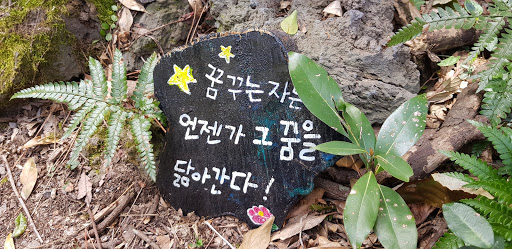 꿈꾸는 자는
언젠가 그 꿈을
닮아간다!